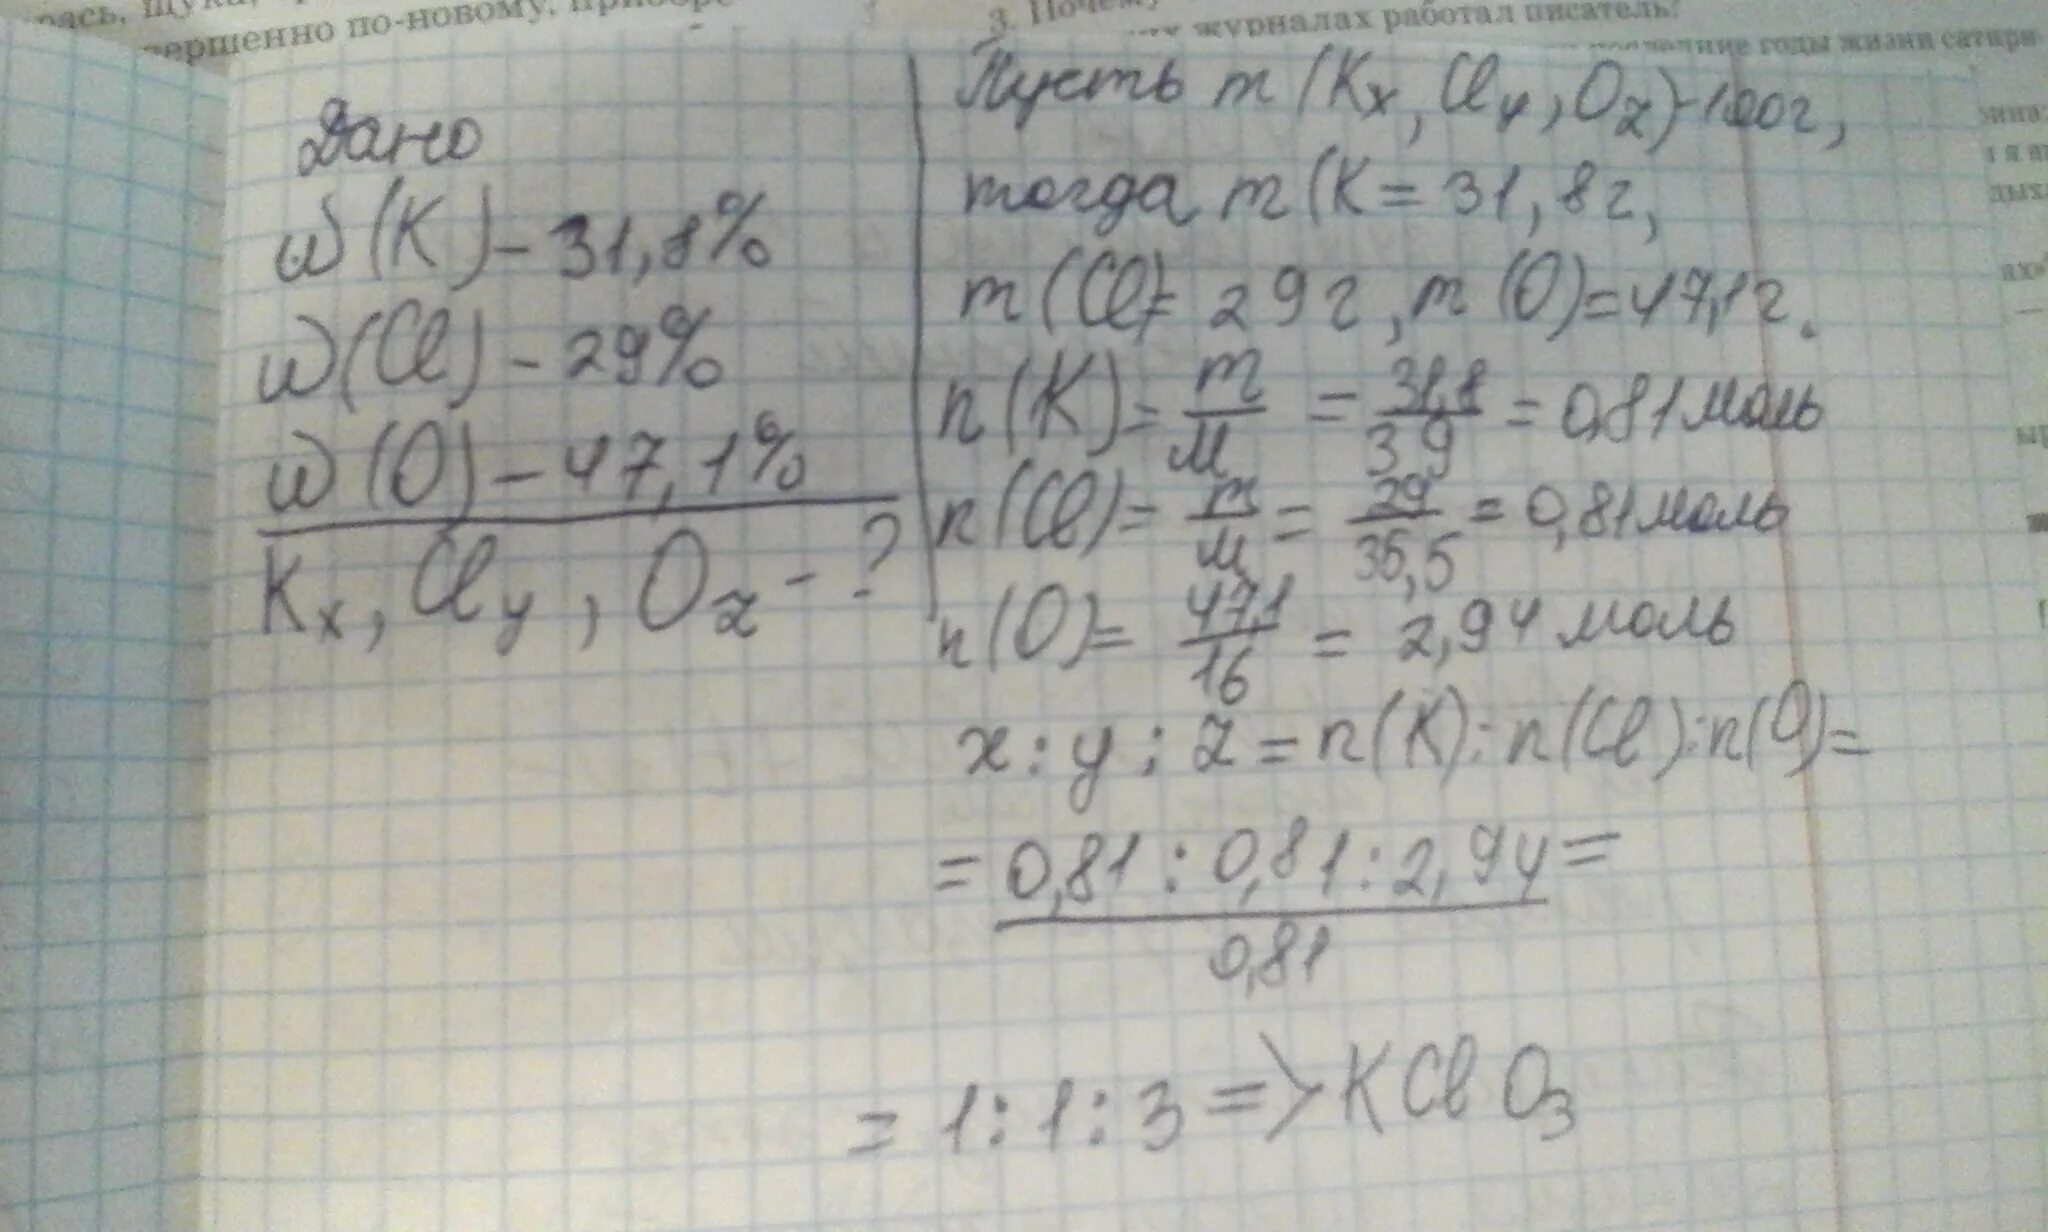 щука,
по-новому,
3. Почему
журналах работал писатель?
годы жизни сатири
Дано
W(K) – 31,8%
W(Cl) – 29%
W(O) – 47,1%
Kx, Cly, Oz – ?
Пусть m(Kx, Cly, Oz) – 100г,
тогда m(K = 31,8г,
m(Cl) = 29г, m(O) = 47,1г.
n(K) = m/M = 31,8/39 = 0,81 моль
n(Cl) = m/M = 29/35,5 = 0,81 моль
n(O) = 47,1/16 = 2,94 моль
x : y : z = n(K) : n(Cl) : n(O) =
= 0,81 : 0,81 : 2,94 =
0,81
= 1 : 1 : 3 => KClO3